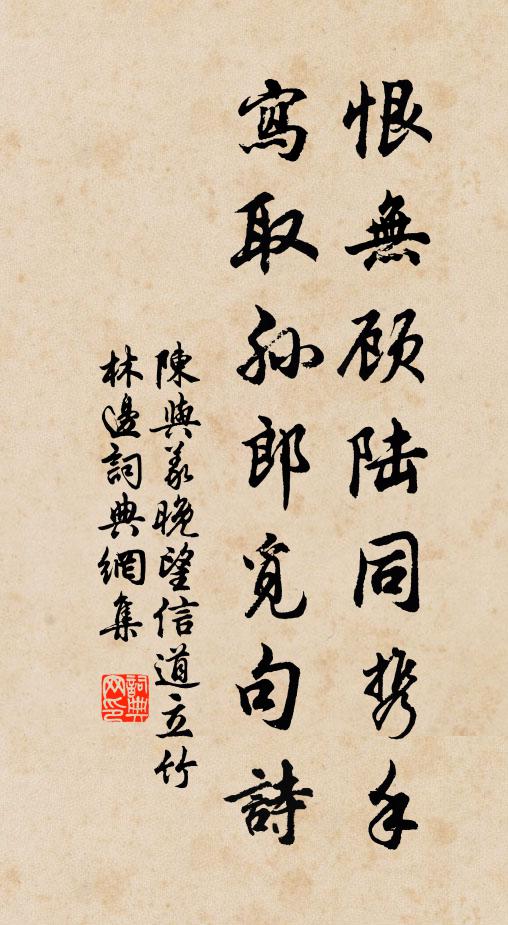 恨無顾陆同携手
寫取孙郎觅句詩
陳與義晚望信道立竹
林邊詞典網集
詞典
网印